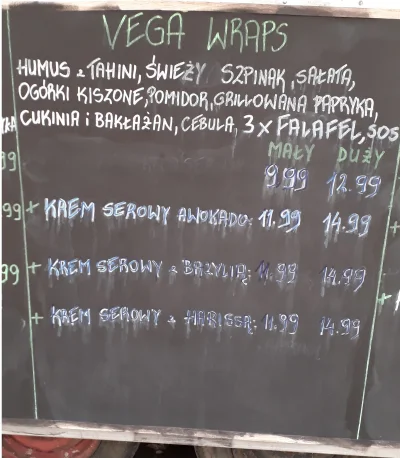 VEGA WRAPS
HUMUS z TAHINI, ŚWIEŻY SZPINAK, SAŁATA,
OGÓRKI KISZONE, POMIDOR, GRILLOWANA PAPRYKA,
CUKINIA i BAKŁAŻAN, CEBULA, 3 x FALAFEL, SOS
MAŁY DUŻY
99 9.99 12.99
99 + KREM SEROWY AWOKADO: 11.99 14.99
99 + KREM SEROWY z BAZYLIĄ: 11.99 14.99
+ KREM SEROWY z HARISSĄ: 11.99 14.99